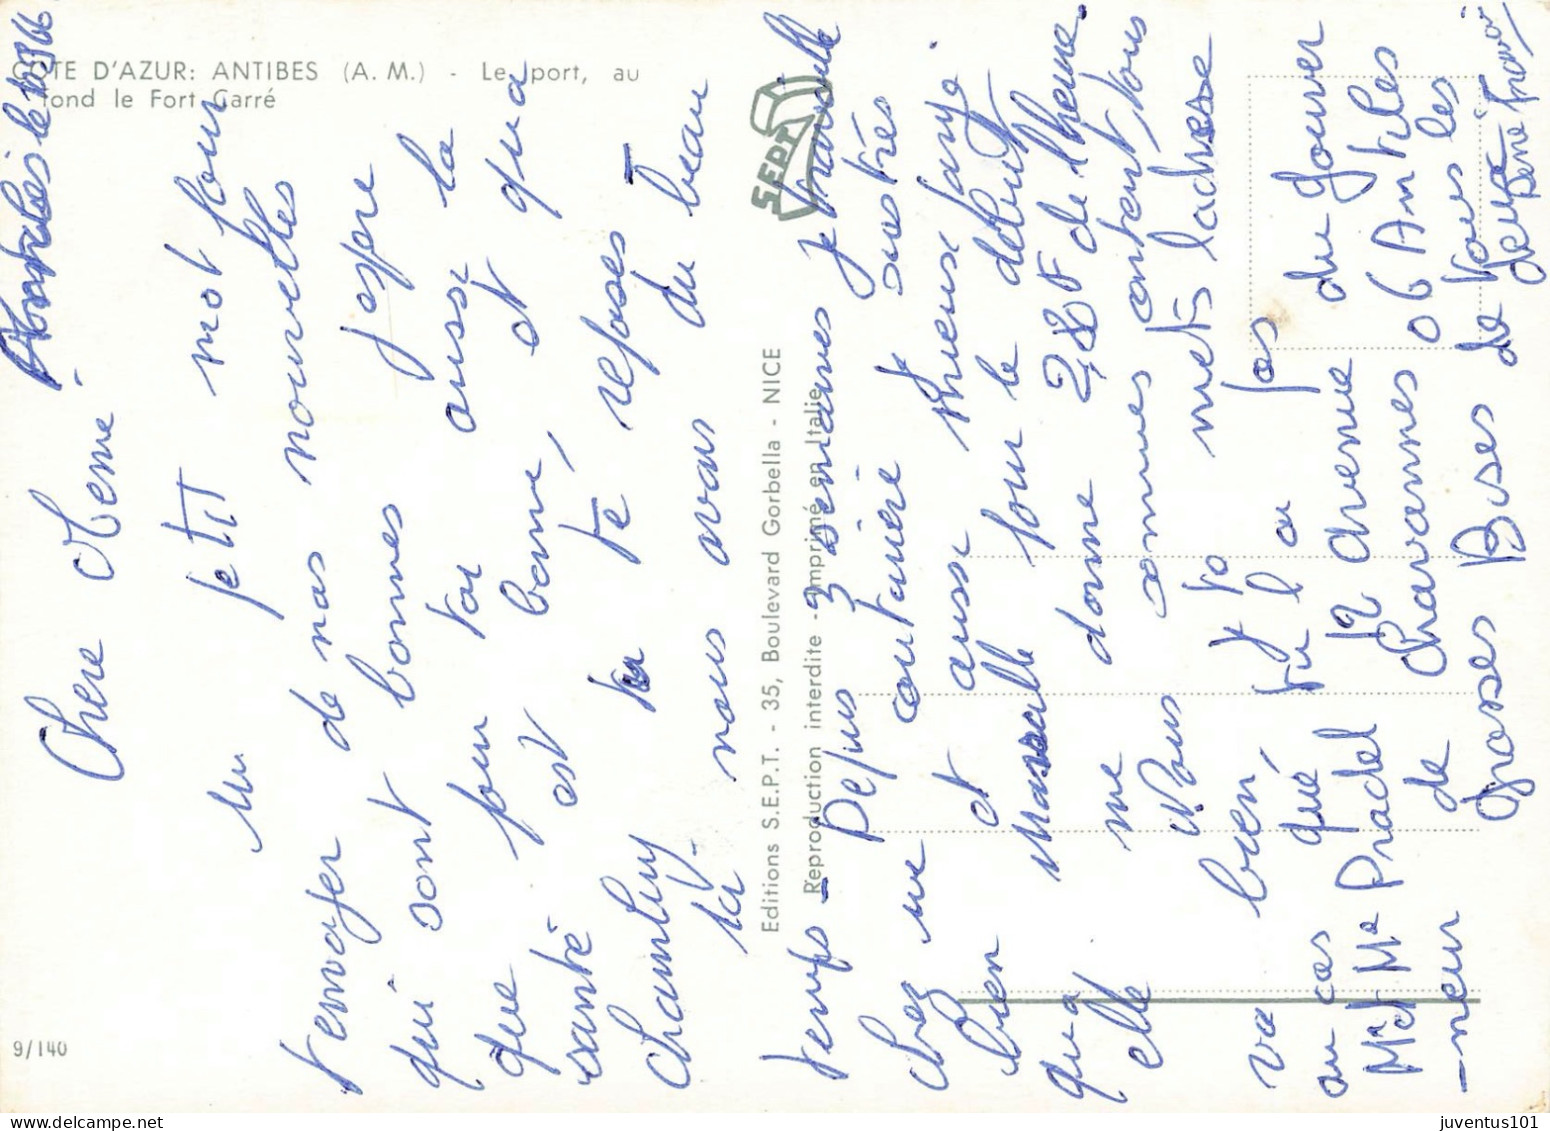 CÔTE D'AZUR: ANTIBES (A. M.) - Le port, au
fond le Fort Carré
9/140
SEPT
Editions S.E.P.T. - 35, Boulevard Gorbella - NICE
Reproduction interdite - Imprimé en Italie
le
Chere
Un petit mot pour
t envoyer de nos nouvelles
qui sont bonnes j espere
que pour toi aussi la
santé est bonne, et qua
Chantilly tu te reposes -
Ici nous avons du beau
temps - Depuis 3 semaines je travaille
chez une couturiere je suis très
bien et aussi mieux payé
qua Marseille pour le debut
elle me donne 2,80F de l heure.
Nous sommes content tous
va bien, y to mets ladresse
au cas qué tu l a pas
Mr et Me Pradel 12 Avenue du Gouver
-neur de Chavannes 06 Antibes
Grosses Bises de tous les
deux
juventus101